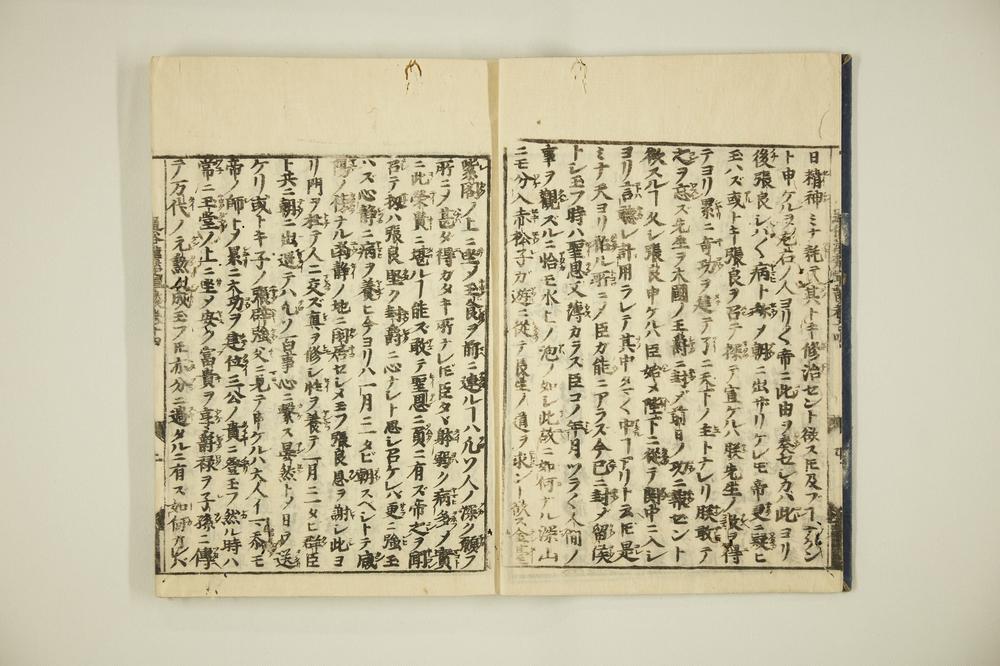 日精神ミナ耗ス其トキ修治セント欲ス圧及ブ丁ナシ
ト申ケルヲ左右ノ人ヨリ〱帝ニ此由ヲ奏セシカハ此ヨリ
後張良シハ〱病ト称ノ朝ニ出サリケレ圧帝更ニ疑ヒ
玉ハズ或トキ張良ヲ召テ宣ケルハ朕先生ノ
テヨリ累ニ奇功ヲ建テ了ニ天下ノ主トナレリ朕敢テ
之ヲ忘ズ先生ヲ大國ノ王爵ニ封ノ前日ノ功ニ報セント
欲スル丁久シ張良申ケルハ臣始メ陛下ニ従テ関中ニ入シ
ヨリ言聴レ計用ラレテ其中タマ〱中丁アリト云圧是
ミナ天ヨリ ル所ニノ臣カ能ニアラズ今已ニ封ノ留侯
トシ玉フ時ハ聖恩又薄カラス臣コノ年月ツラ〱人間ノ
事ヲ觀ズルニ恰モ水上ノ泡ノ如シ此故ニ如何ナル深山
ニモ分入赤松子ガ遊ニ從テ長生ノ道ヲ求ン丁ヲ欲ス金臺
紫閣ノ上ニ坐ノ王良ヲ前ニ連ル丁ハ凡ソ人ノ深ク願フ
所ニノ甚タ得ガタキ所ナレ圧臣タマ〱躬弱ク病多メ實
ニ此榮貴ニ堪ル丁能ズ敢テ聖恩ニ負ニ有ズ帝之ヲ聞
召テ扨ハ張良堅ク封爵ニ心ナシト思シ召ケレバ更ニ強玉
ハズ心静ニ病ヲ養ヒ今ヨリハ一月ニ一タビ朝スヘシトテ咸
陽ノ後ナル幽静ノ地ニ閑居セシメ玉フ張良恩ヲ謝シ此ヨ
リ門ヲ杜テ人ニ交ズ真ヲ修シ性ヲ養テ一月ニ一タヒ群臣
ト共ニ朝ニ出還テハ凡ノ百事心ニ繋ス曇然トノ日ヲ送
ケリ或トキ子ノ張辟強父ニ見テ申ケルハ大人イ一忝モ
帝ノ師トノ累ニ大功ヲ建位三公ノ貴ニ登玉フ然ル時ハ
常ニ玉堂ノ上ニ坐メ安ク富貴ヲ享爵禄ヲ子孫ニ傳
テ万代ノ元勲ト成玉フ圧亦分ニ過タルニ有ズ如何ナレハ